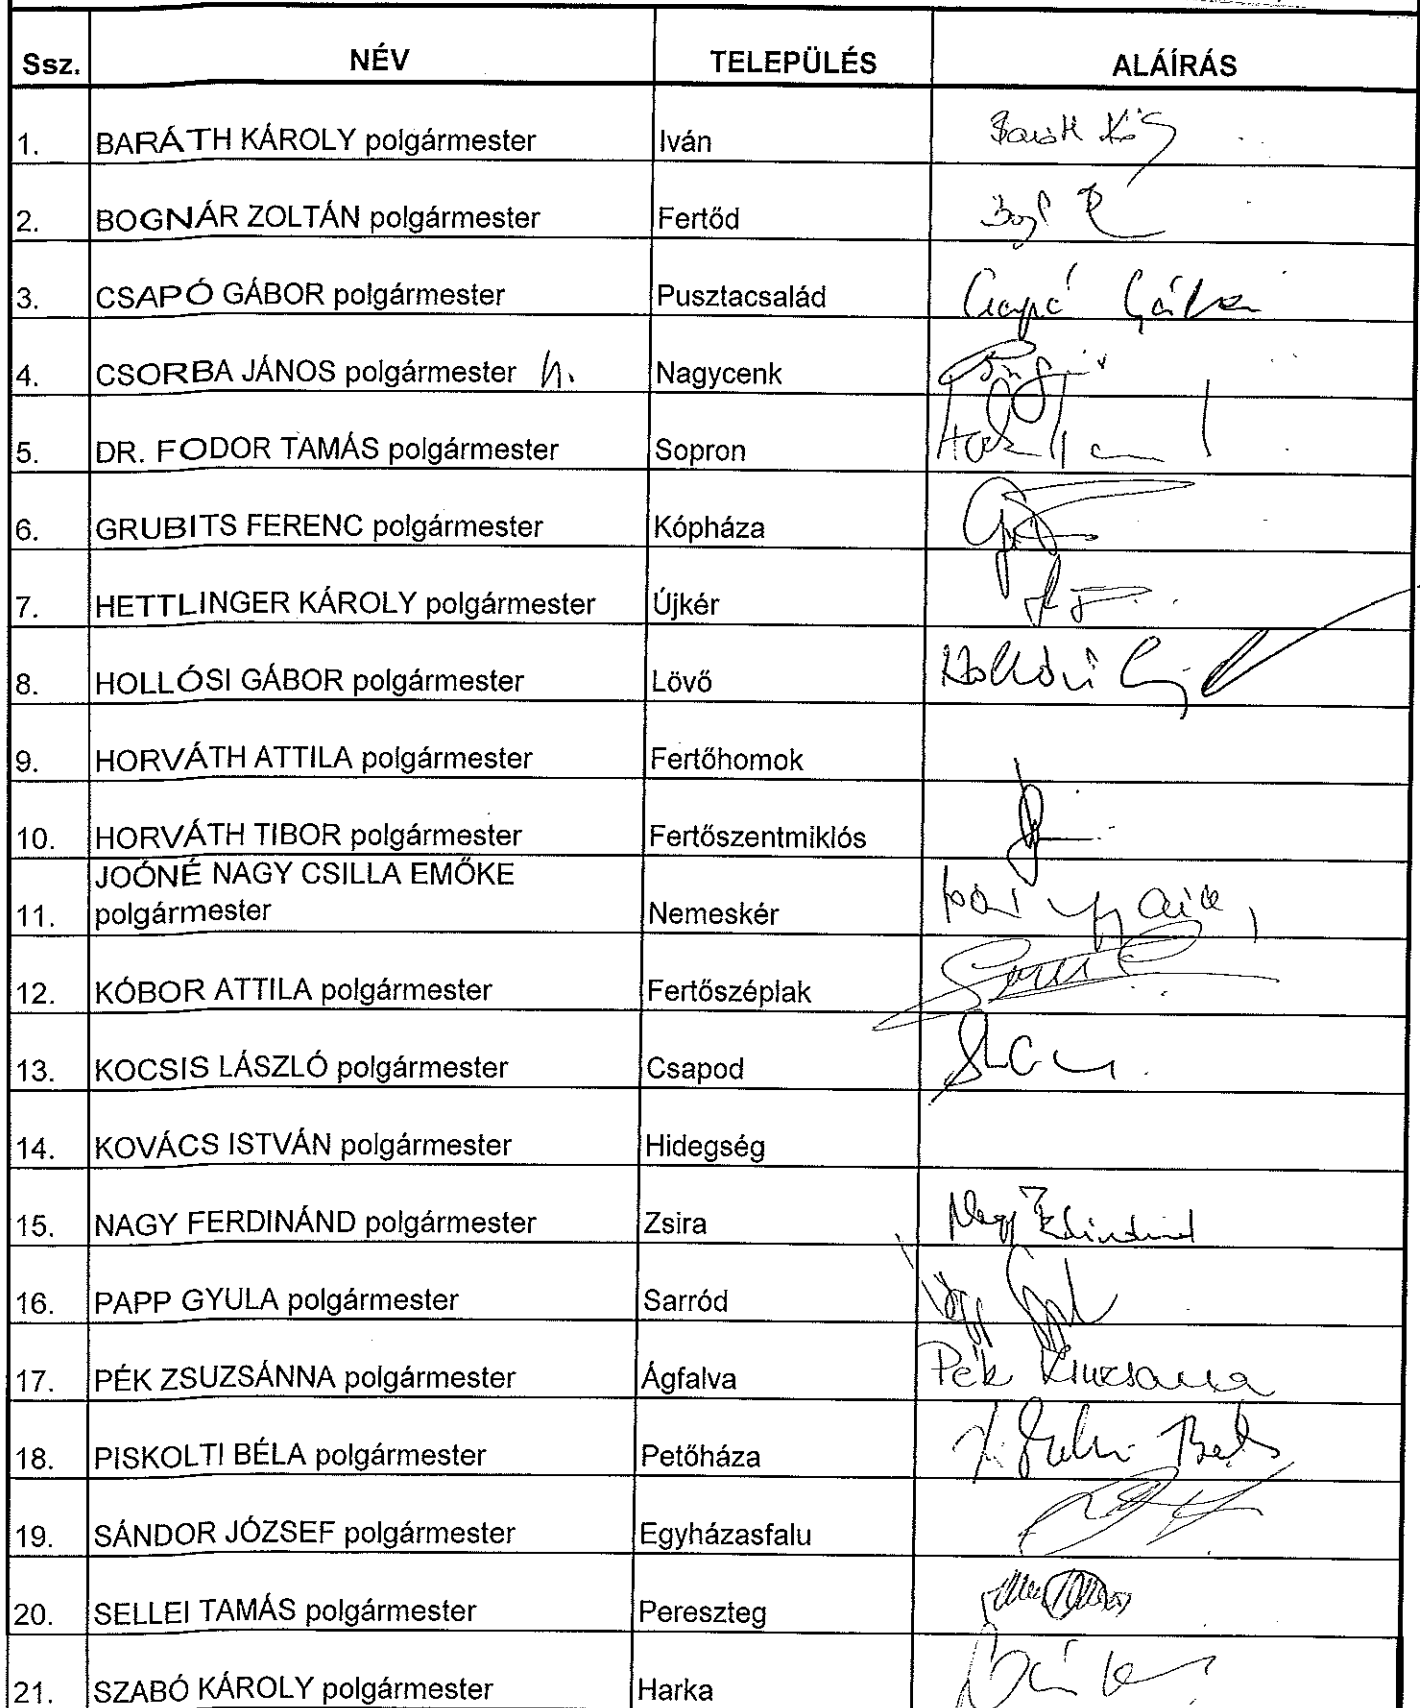 Ssz. NÉV TELEPÜLÉS ALÁÍRÁS
1. BARÁTH KÁROLY polgármester Iván
2. BOGNÁR ZOLTÁN polgármester Fertőd
3. CSAPÓ GÁBOR polgármester Pusztacsalád Csapó Gábor
4. CSORBA JÁNOS polgármester h. Nagycenk
5. DR. FODOR TAMÁS polgármester Sopron
6. GRUBITS FERENC polgármester Kópháza
7. HETTLINGER KÁROLY polgármester Újkér
8. HOLLÓSI GÁBOR polgármester Lövő Hollósi
9. HORVÁTH ATTILA polgármester Fertőhomok
10. HORVÁTH TIBOR polgármester Fertőszentmiklós
JOÓNÉ NAGY CSILLA EMŐKE
11. polgármester Nemeskér
12. KÓBOR ATTILA polgármester Fertőszéplak
13. KOCSIS LÁSZLÓ polgármester Csapod
14. KOVÁCS ISTVÁN polgármester Hidegség
15. NAGY FERDINÁND polgármester Zsira Nagy Ferdinánd
16. PAPP GYULA polgármester Sarród
17. PÉK ZSUZSÁNNA polgármester Ágfalva Pék Zsuzsanna
18. PISKOLTI BÉLA polgármester Petőháza
19. SÁNDOR JÓZSEF polgármester Egyházasfalu
20. SELLEI TAMÁS polgármester Pereszteg
21. SZABÓ KÁROLY polgármester Harka